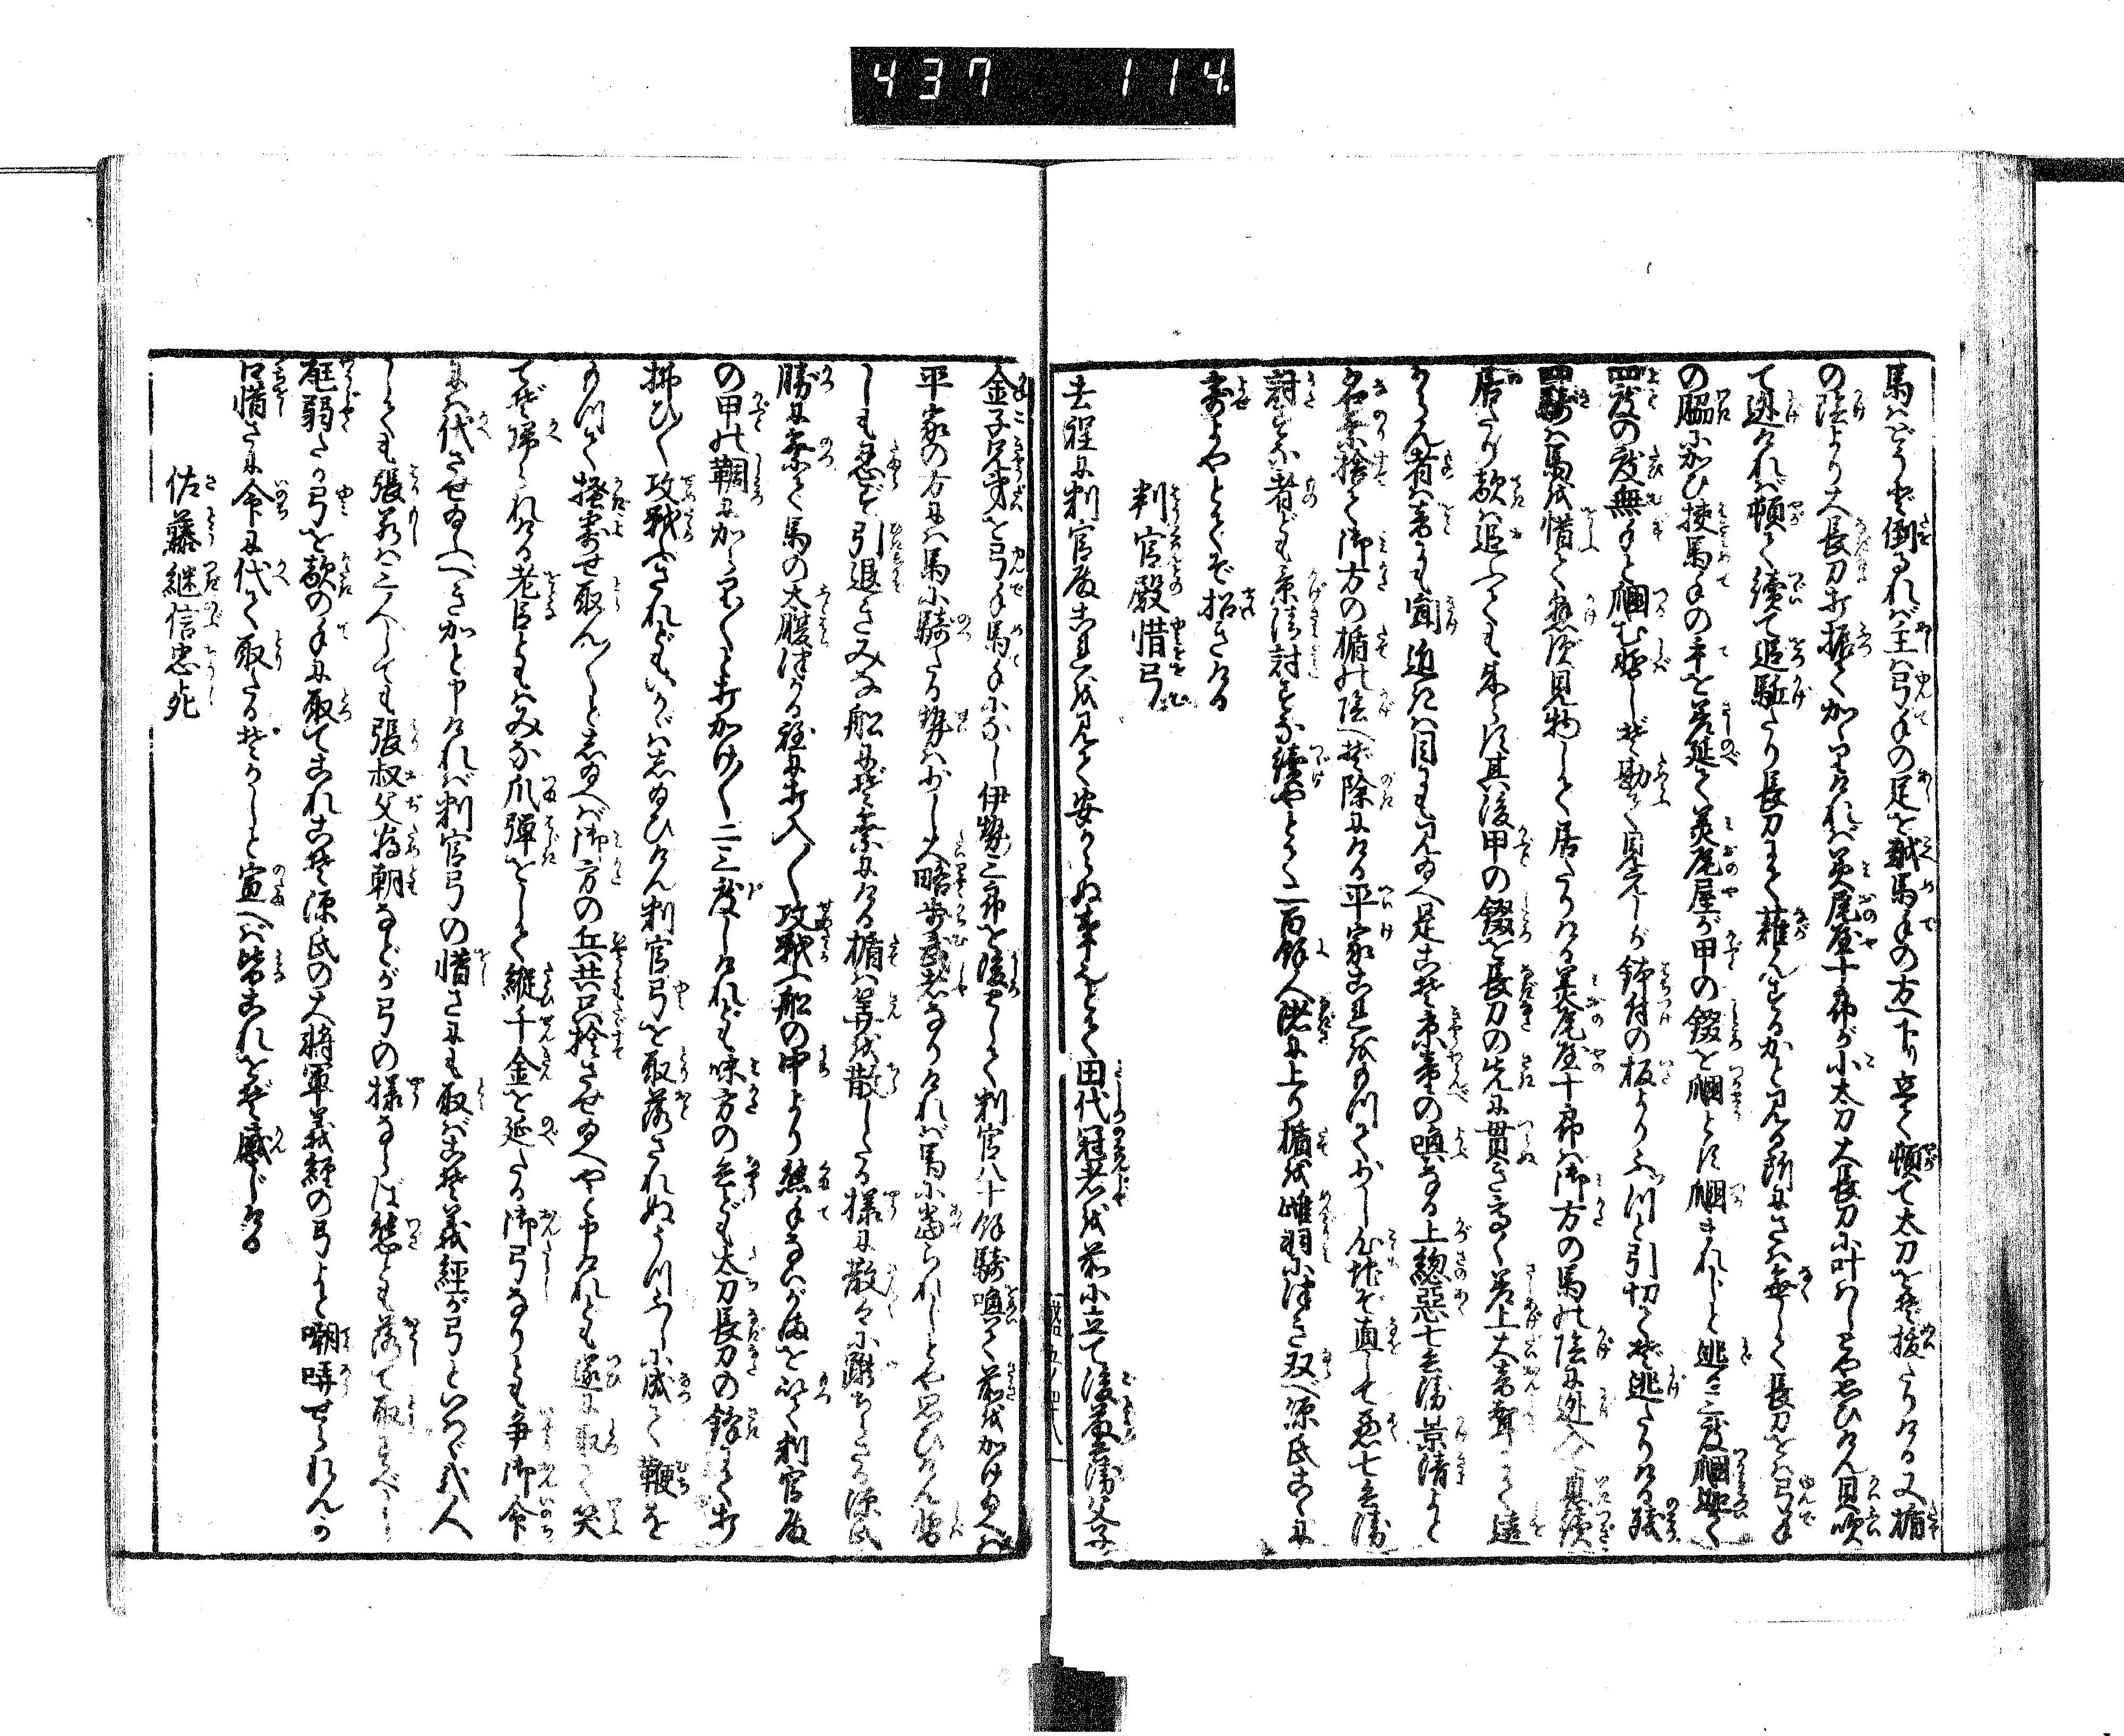 437 114.
馬はどうど倒るれば主は弓手の足を越馬手の方へ下り立て頓て太刀をぞ拔たりける又楯
の陰より大長刀打振てかゝりければ美尾屋十郎が小太刀大長刀に叶はじとや思ひけん貝吹
て逃ければ頓て續て追駈たり長刀にて薙んするかと見る所にさは無して長刀をば弓手
の脇にかひ挾馬手の手を差延て美尾屋が甲の錣を𢴃とす𢴃まれじと逃三度𢴃逃て
四度の度無手と𢴃む暫しぞ勘て見えしが鉢付の板よりふつと引切てぞ逃たりける殘
四騎は馬を惜て懸ず見物してぞ居たりける美尾屋十郎は御方の馬の陰に迯入て息續
居たり敵は追ふても來らず其後甲の錣を長刀の先に貫き高く差上大音聲にて遠
からん者は音にも聞近きは目にも見給へ是こそ京童の喚なる上總惡七兵衛景清よと
名乘捨て御方の楯の陰へぞ除にける平家これをみつて少し心地ぞ直して惡七兵衛
討すな者ども景清討すな續やとて二百餘人渚に上り楯を雌羽につき双べ源氏こゝに
寄よやとぞ招きける
判官殿惜弓
去程に判官殿これを見て安からぬ事也とて田代冠者を前に立て後藤兵衛父子
金子兄弟を弓手馬手になし伊勢三郎を後として判官八十餘騎喚て前を加け給へば
平家の方には馬に騎たる勢は少し大略歩武者なりければ馬に當られじとや思ひけん暫
しも忍ず引退きみな船にぞ乘にける楯は算を散したる樣に散々に蹴ちらさる源氏
勝に乘て馬の太腹津かる程に打入〳〵攻戰ふ船の中より熊手ないがまを以て判官殿
の甲の錣にからり〳〵と打かけ〳〵二三度しけれども味方の兵ども太刀長刀の鋒にて打
拂ひ〳〵攻戰ふされどもいかゞはし給ひけん判官弓を取落されぬうつふし小威て鞭を
もつて搔寄せ取ん〳〵とし給へば御方の兵共只捨させ給へやと申けれども遂に取て笑
てぞ歸られける老臣ともはみな爪彈をして縱千金を延たる御弓なりとも爭御命
には代させ給ふべきかと申ければ判官弓の惜さにも取ばこそ義經が弓といはゞ貳人
しても張若は三人しても張叔父爲朝などが弓の樣ならば態とも落て取すべし
尫弱たる弓を敵の手に取てこれこそ源氏の大將軍義經の弓よと嘲哢せられんが
口惜さに命に代て取たるぞかしと宣へば皆これをぞ感じける
佐藤継信忠死